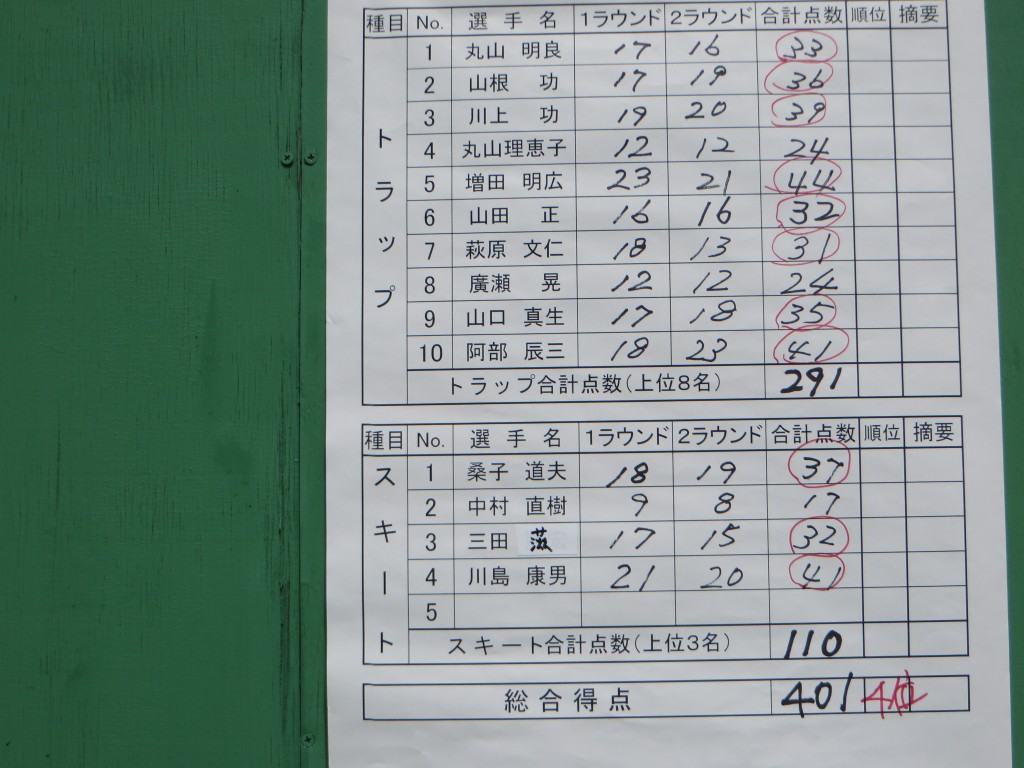 種目 No. 選手名 1ラウンド 2ラウンド 合計点数 順位 摘要
トラップ
1 丸山 明良 17 16 33
2 山根 功 17 19 36
3 川上 功 19 20 39
4 丸山理恵子 12 12 24
5 増田 明広 23 21 44
6 山田 正 16 16 32
7 萩原 文仁 18 13 31
8 廣瀬 晃 12 12 24
9 山口 真生 17 18 35
10 阿部 辰三 18 23 41
トラップ合計点数(上位8名) 291
種目 No. 選手名 1ラウンド 2ラウンド 合計点数 順位 摘要
スキート
1 桑子 道夫 18 19 37
2 中村 直樹 9 8 17
3 三田 17 15 32
4 川島 康男 21 20 41
5
スキート合計点数(上位3名) 110
総合得点 401 4位